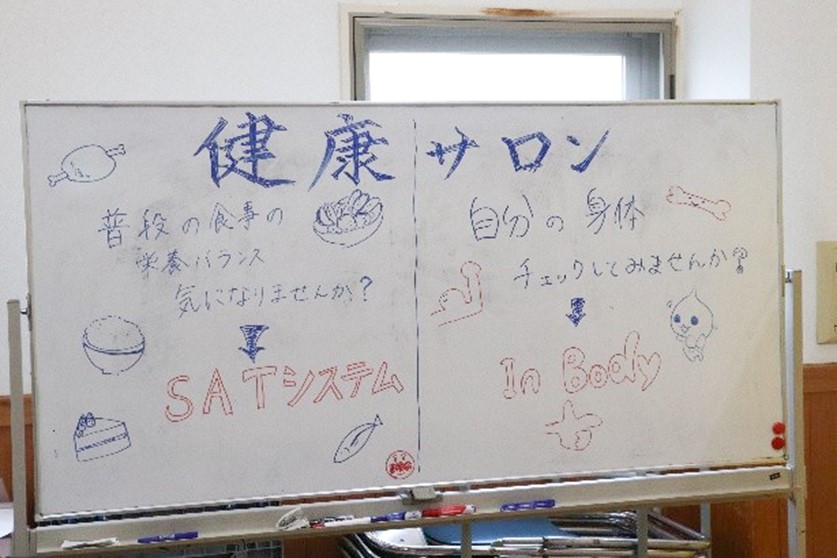 健康サロン
普段の食事の
栄養バランス
気になりませんか?
SATシステム
自分の身体
チェックしてみませんか?
In Body